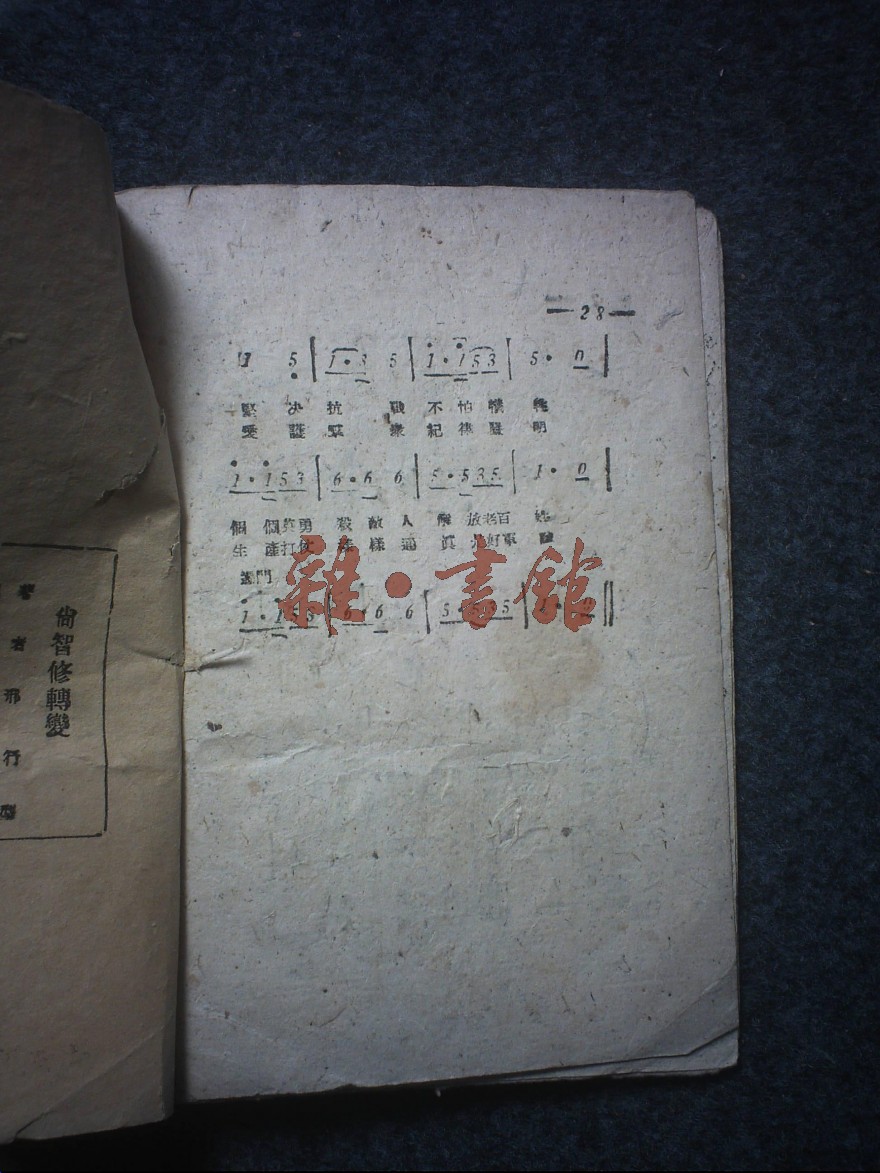 —28—
1 5 | 1·3 5 | 1·153 | 5· 0 |
堅决抗 戰不怕犧牲
愛護羣衆紀律嚴明
1·153 | 6·6 6 | 5·535 | 1· 0 |
個個英勇殺敵人解放老百姓
生產打仗樣樣通眞是好軍隊
過門
1·153 | 6·6 6 | 5·535 | 1· 0 ||
雜·書館
尙智修轉變
著者邢行